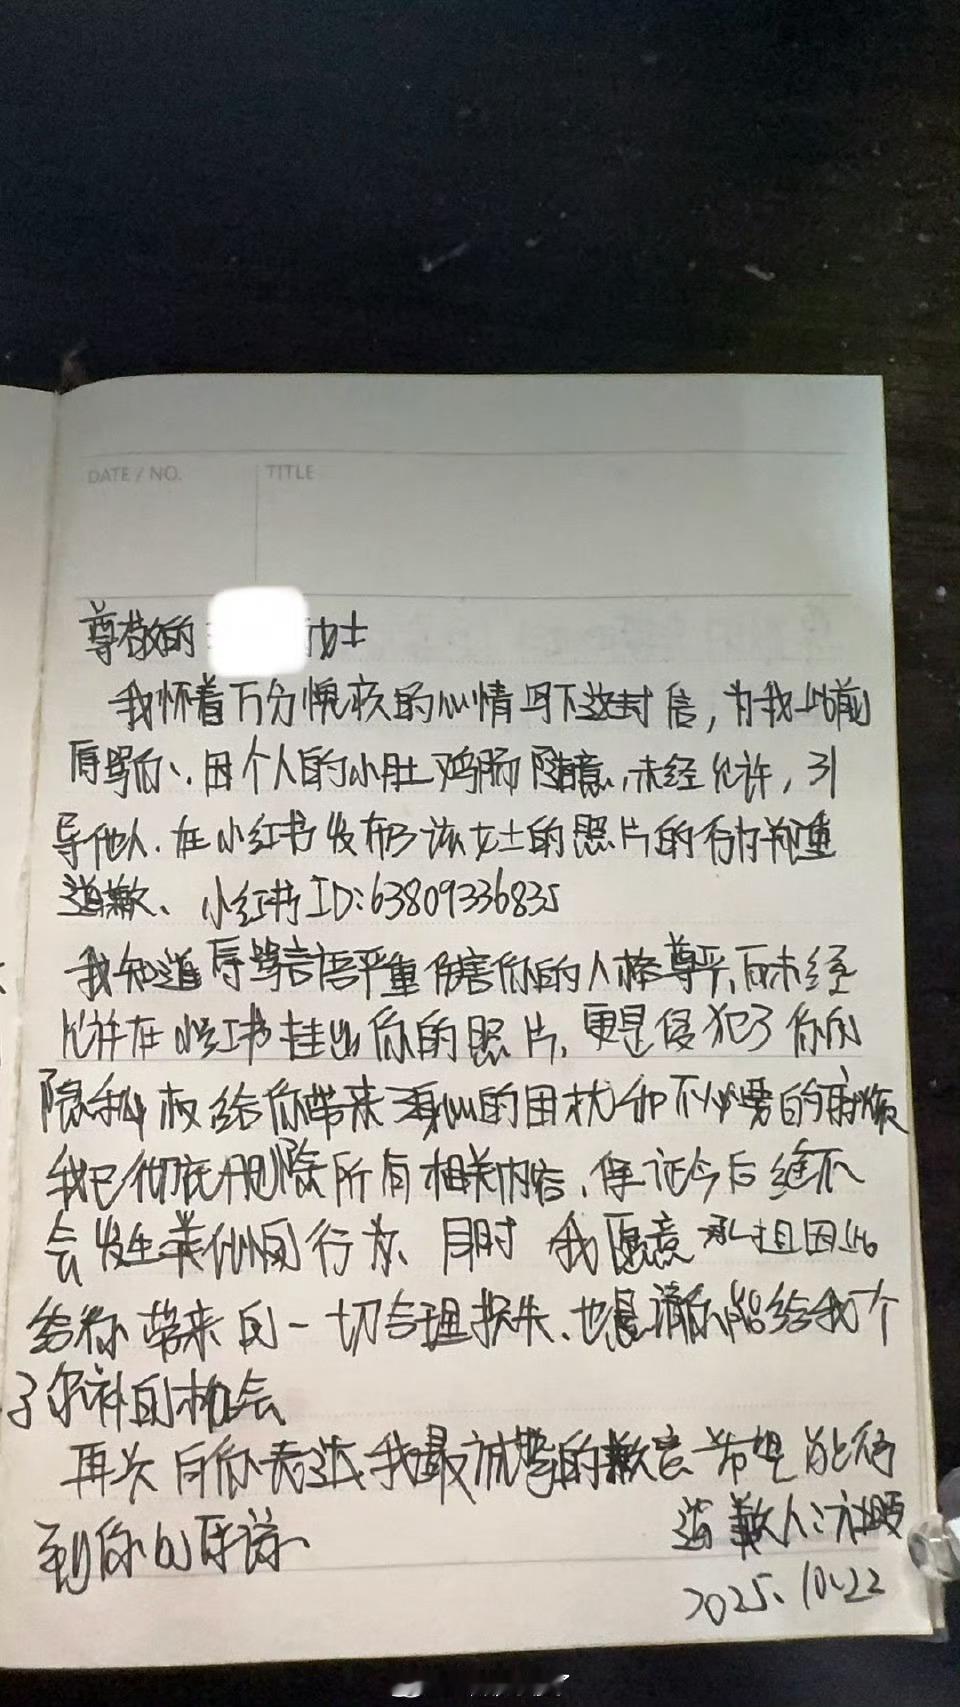 DATE / NO. TITLE
尊敬的 女士
我怀着万分愧疚的心情写下这封信,为我以前
辱骂你、因个人的小肚鸡肠随意,未经允许,引
导他人.在小红书发布了该女士的照片的行为郑重
道歉、小红书ID:63809336835
我知道辱骂言语严重伤害你的人格尊严、而未经
允许在小红书挂出你的照片,更是侵犯了你的
隐私权给你带来身心的困扰和不必要的麻烦
我已彻底删除所有相关内容,保证今后绝不
会发生类似的行为、同时我愿意承担因此
给你带来的一切合理损失、也恳请你能给我个
了弥补的机会
再次向你表达我最诚挚的歉意希望能得
到你的原谅、
道歉人:
2025、10、22